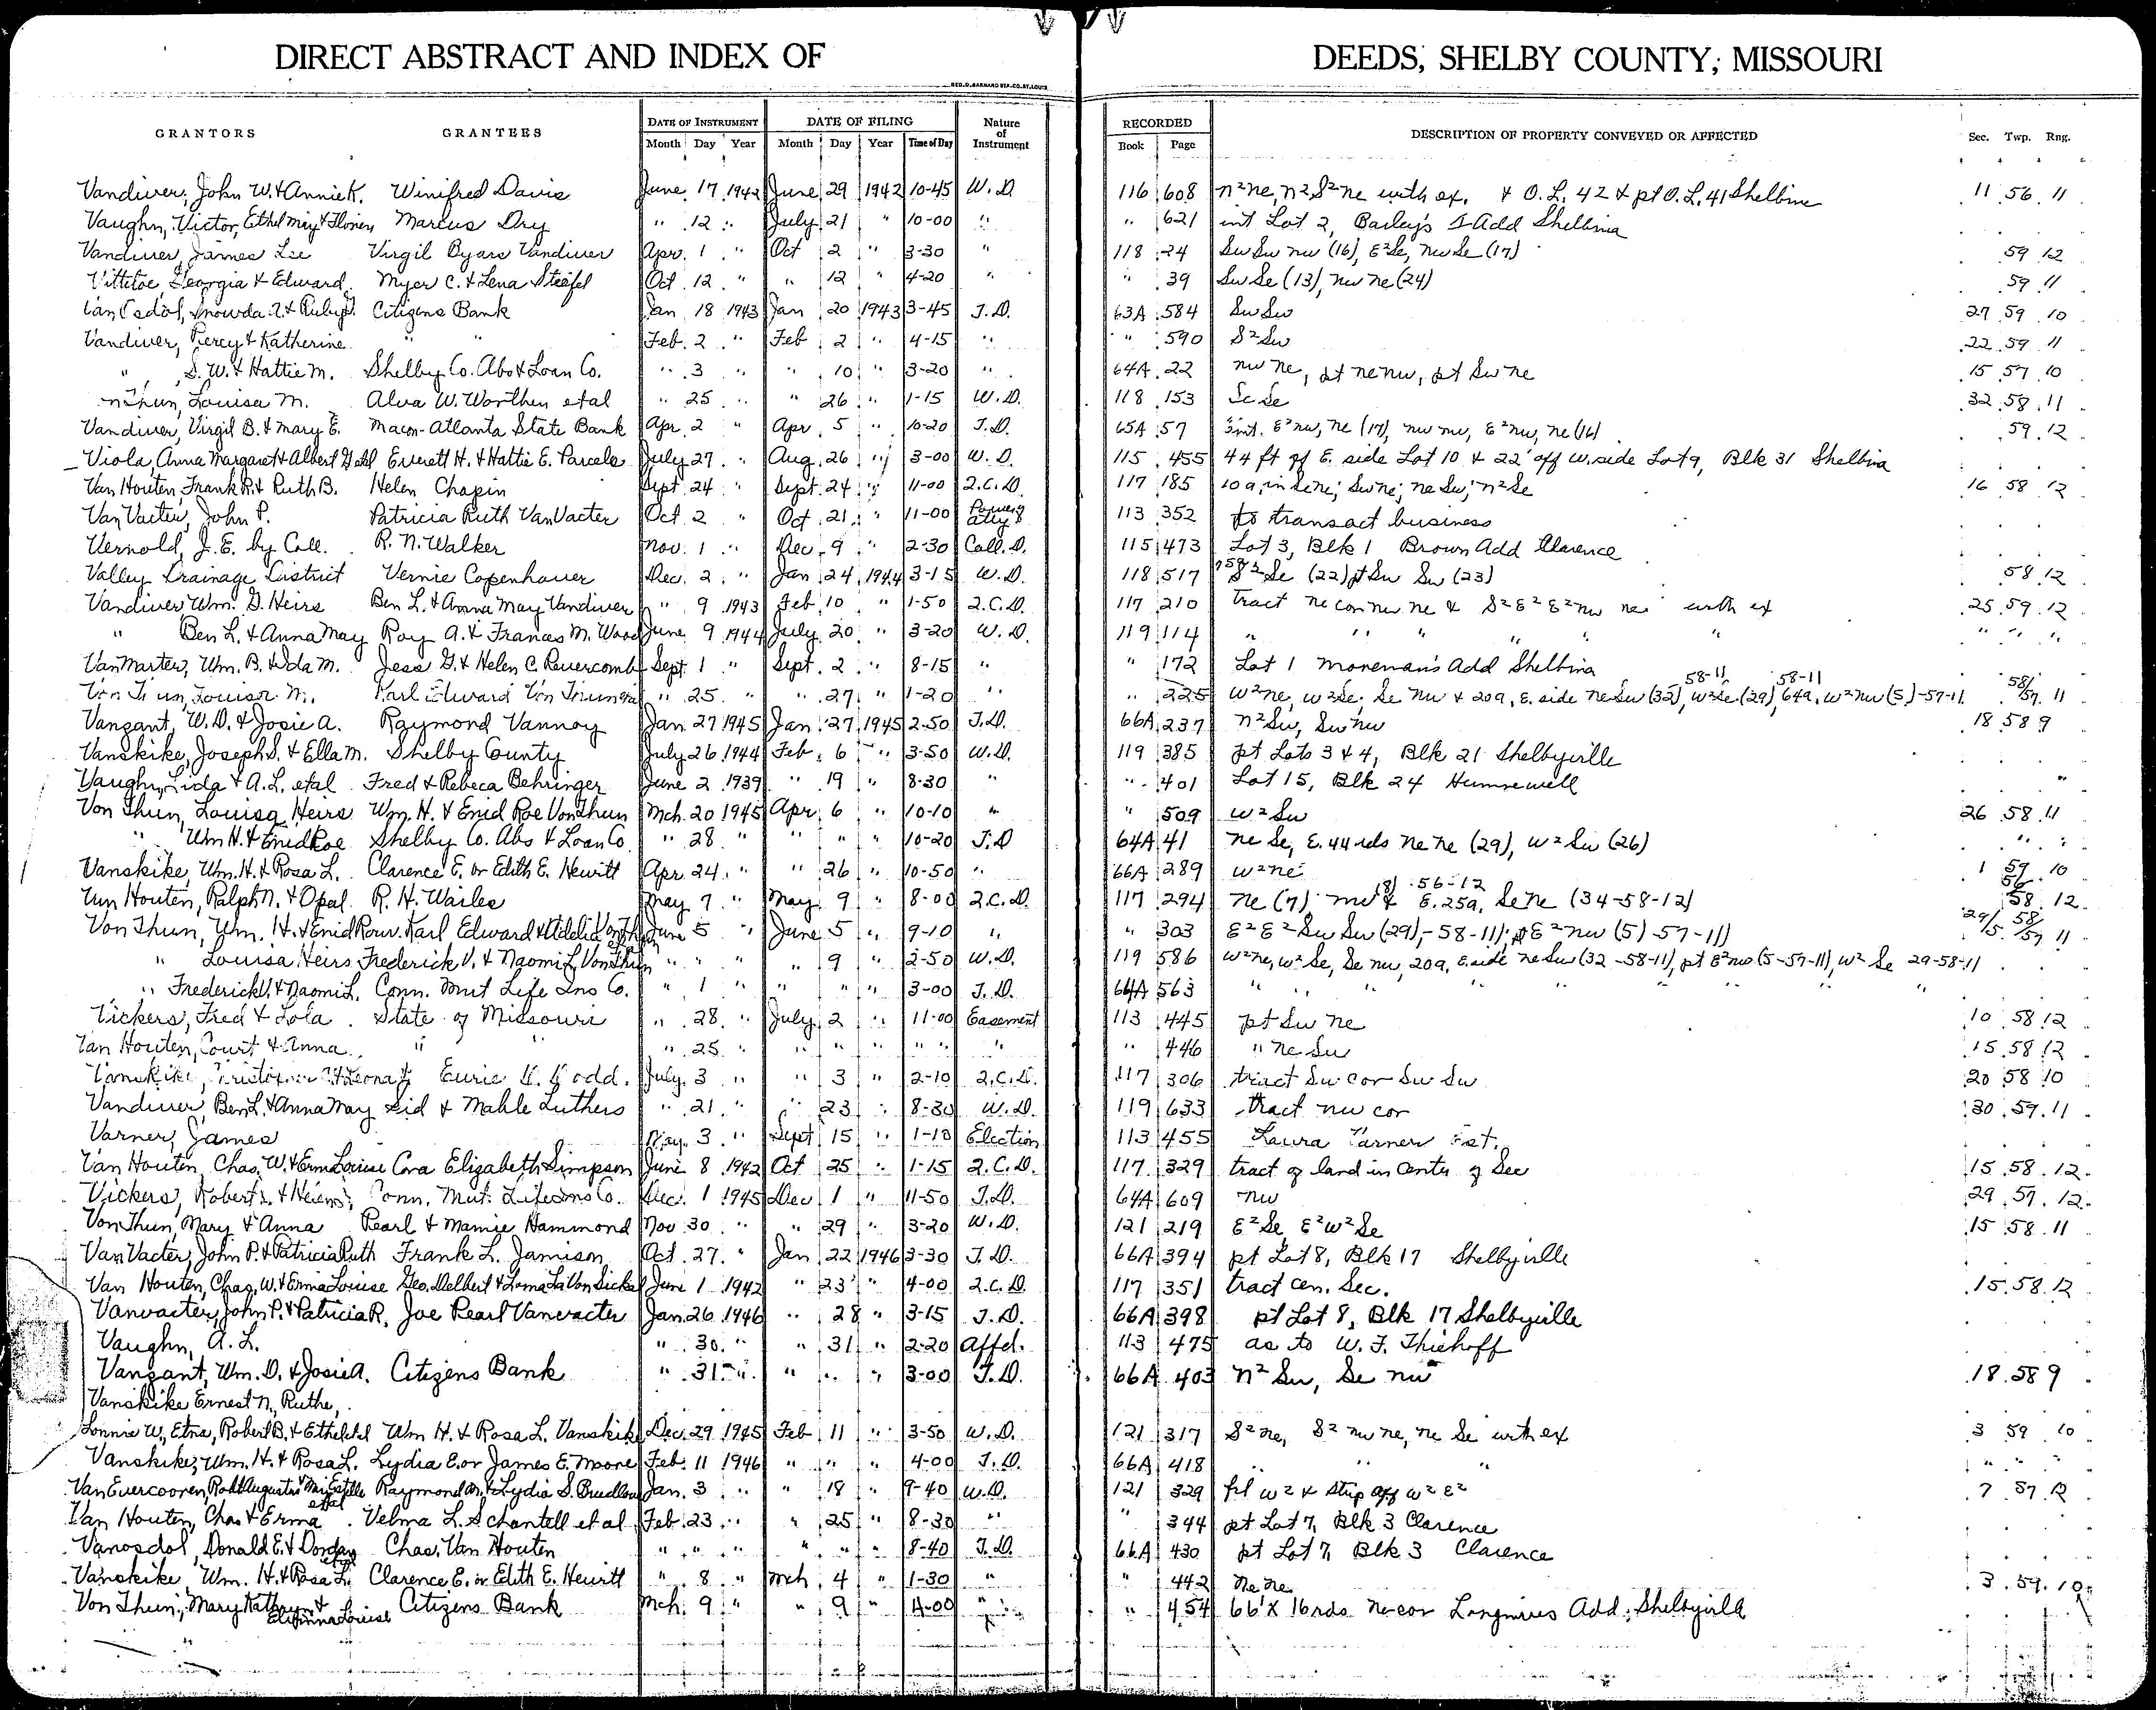 DIRECT ABSTRACT AND INDEX OF DEEDS, SHELBY COUNTY, MISSOURI
GEO. D. BARNARD STA. CO. ST. LOUIS
GRANTORS GRANTEES DATE OF INSTRUMENT DATE OF FILING Nature of Instrument RECORDED DESCRIPTION OF PROPERTY CONVEYED OR AFFECTED Sec. Twp. Rng.
Month Day Year Month Day Year Time of Day Book Page
Vandiver, John W. & Annie K. Winifred Davis June 17 1942 June 29 1942 10-45 W.D. 116 608 n²ne, n²S²ne with ex. & O.L. 42 & pt O.L. 41 Shelbina 11 56 11
Vaughn, Victor, Ethel May & Marcus Dry " 12 " July 21 " 10-00 " " 621 int Lot 2, Bailey's Add Shelbina
Vandiver, James Lee Virgil Byars Vandiver Apr. 1 " Oct 2 " 3-30 " 118 24 Sw Sw nw (16), E²Se, nw Se (17) 59 12
Vittetoe, Georgia & Edward Myer C. & Lena Stiefel Oct. 12 " " 12 " 4-20 " " 39 Sw Se (13), nw ne (24) 59 11
Citizens Bank Jan 18 1943 Jan 20 1943 3-45 T.D. 63A 584 Sw Sw 27 59 10
Vandiver, Percy & Katherine " " Feb. 2 " Feb 2 " 4-15 " " 590 S²Sw 22 59 11
" , S. W. & Hattie M. Shelby Co. Abs & Loan Co. " 3 " " 10 " 3-20 " 64A 22 nw ne, pt ne nw, pt Sw ne 15 57 10
Louisa M. Alva W. Worthen et al " 25 " " 26 " 1-15 W.D. 118 153 Se Se 32 58 11
Vandiver, Virgil B. & Mary E. Macon-Atlanta State Bank Apr. 2 " Apr. 5 " 10-20 T.D. 65A 57 int. E²nw, ne (17), nw nw, E²nw, ne (16) 59 12
Viola, Anna Margaret & Albert Everett H. & Hattie E. Parcels July 27 " Aug. 26 " 3-00 W.D. 115 455 44 ft off E. side Lot 10 & 22' off W. side Lot 9, Blk 31 Shelbina
Van Houten, Frank R. & Ruth B. Helen Chapin Sept 24 " Sept. 24 " 11-00 2.C.D. 117 185 10a, in Se ne; Sw ne; ne Sw; n²Se 16 58 12
Van Vacter, John P. Patricia Ruth VanVacter Oct 2 " Oct. 21 " 11-00 Power of atty 113 352 to transact business
Vernold, J. E. by Coll. R. N. Walker Nov. 1 " Dec. 9 " 2-30 Coll. D. 115 473 Lot 3, Blk 1 Brown Add Clarence
Valley Drainage District Vernie Copenhaver Dec. 2 " Jan 24 1944 3-15 W.D. 118 517 S²Se (22) pt Sw Sw (23) 58 12
Vandiver Wm. G. Heirs Ben L. & Anna May Vandiver " 9 1943 Feb 10 " 1-50 2.C.D. 117 210 tract ne cor nw ne & S²E²E²nw ne with ex 25 59 12
" Ben L. & Anna May Roy A. & Frances M. Wood June 9 1944 July 20 " 3-20 W.D. 119 114 " " " " " " " " "
VanMarter, Wm. B. & Ida M. Jess G. & Helen C. Revercomb Sept. 1 " Sept. 2 " 8-15 " " 172 Lot 1 Moreman's Add Shelbina
Von Thun, Louisa M. Karl Edward Von Thun " 25 " " 27 " 1-20 " " 225 W²ne, W²Se, Se nw & 20a, E. side ne Sw (32) 58-11, W²Se (29) 58-11, 64a, W²nw (5)-57-11 58/57 11
Vanzant, W. D. & Josie A. Raymond Vannoy Jan 27 1945 Jan 27 1945 2-50 T.D. 66A 237 n²Sw, Sw nw 18 58 9
Vanskike, Joseph S. & Ella M. Shelby County July 26 1944 Feb. 6 " 3-50 W.D. 119 385 pt Lots 3 & 4, Blk 21 Shelbyville
Vaughn, Lida & A. L. et al Fred & Rebeca Behringer June 2 1939 " 19 " 8-30 " " 401 Lot 15, Blk 24 Hunnewell
Von Thun, Louisa Heirs Wm. H. & Enid Roe VonThun Mch. 20 1945 Apr 6 " 10-10 " " 509 W²Sw 26 58 11
" Wm H. & Enid Roe Shelby Co. Abs & Loan Co. " 28 " " " " 10-20 T.D 64A 41 ne Se, E. 44 rds ne ne (29), W²Sw (26) " "
Vanskike, Wm. H. & Rosa L. Clarence E. or Edith E. Hewitt Apr 24 " " 26 " 10-50 " 66A 289 W²ne 1 59 10
Van Houten, Ralph N. & Opal R. H. Wailes May 7 " May 9 " 8-00 2.C.D. 117 294 ne (7) nw & E. 25a, (8) 56-12 Se ne (34-58-12) 56 58 12
Von Thun, Wm. H. & Enid Karl Edward & Adelia Von Thun June 5 " June 5 " 9-10 " " 303 E²E²Sw Sw (29)-58-11); pt E²nw (5)-57-11) 29/5 58/57 11
" Louisa Heirs Frederick V. & Naomi L. VonThun " " " " 9 " 2-50 W.D. 119 586 W²ne, W²Se, Se nw, 20a, E. side ne Sw (32-58-11), pt E²nw (5-57-11), W² Se 29-58-11
" Frederick V. & Naomi L. Conn. Mut Life Ins Co. " 1 " " " " 3-00 T.D. 64A 563 " " " " " " " " "
Vickers, Fred & Lola State of Missouri " 28 " July 2 " 11-00 Easement 113 445 pt Sw ne 10 58 12
Van Houten, Court & Anna " " " 25 " " " " " " " " 446 " ne Sw 15 58 12
July 3 " " 3 " 2-10 2.C.D. 117 306 tract Sw cor Sw Sw 20 58 10
Vandiver, Ben L. & Anna May Sid & Mable Luthers " 21 " " 23 " 8-30 W.D. 119 633 tract nw cor 30 59 11
Varner, James May 3 " Sept 15 " 1-10 Election 113 455 Laura Varner Est.
Van Houten, Chas. W. & Erma Louise Cora Elizabeth Simpson June 8 1942 Oct 25 " 1-15 2.C.D. 117 329 tract of land in center of Sec 15 58 12
Vickers, Robert Conn. Mut. Life Ins Co. Dec. 1 1945 Dec 1 " 11-50 T.D. 64A 609 nw 29 57 12
Von Thun, Mary & Anna Pearl & Mamie Hammond Nov 30 " " 29 " 3-20 W.D. 121 219 E²Se, E²W²Se 15 58 11
Van Vacter, John P. & Patricia Ruth Frank L. Jamison Oct. 27 " Jan 22 1946 3-30 T.D. 66A 394 pt Lot 8, Blk 17 Shelbyville
Van Houten, Chas. W. & Erma Louise Geo. Delbert & Van Sickel June 1 1942 " 23 " 4-00 2.C.D. 117 351 tract cen. Sec. 15 58 12
Vanvacter, John P. & Patricia R. Joe Pearl Vanvacter Jan. 26 1946 " 28 " 3-15 T.D. 66A 398 pt Lot 8, Blk 17 Shelbyville
Vaughn, A. L. " 30 " " 31 " 2-20 Affd. 113 475 as to W. F. Thiehoff
Vanzant, Wm. D. & Josie A. Citizens Bank " 31 " " " " 3-00 T.D. 66A 403 n² Sw, Se nw 18 58 9
Vanskike Ernest N., Ruthe,
Lonnie W., Etna, Robert B. & Ethel et al Wm H. & Rosa L. Vanskike Dec. 29 1945 Feb 11 " 3-50 W.D. 121 317 S²ne, S² nw ne, ne Se with ex 3 59 10
Vanskike, Wm. H. & Rosa L. Lydia E. or James E. Moore Feb. 11 1946 " " " 4-00 T.D. 66A 418 " " " " " "
VanEvercooren, Robt Augustus & Mary Estelle et al Raymond M. & Lydia S. Jan. 3 " " 18 " 9-40 W.D. 121 329 frl W² & strip off W²E² 7 57 12
Van Houten, Chas & Erma Velma L. Schantell et al Feb. 23 " " 25 " 8-30 " " 344 pt Lot 7, Blk 3 Clarence
Vanosdol, Donald E. & et al Chas. Van Houten " " " " " " 8-40 T.D. 66A 430 pt Lot 7, Blk 3 Clarence
Vanskike, Wm. H. & Rosa L. Clarence E. or Edith E. Hewitt " 8 " Mch. 4 " 1-30 " " 442 ne ne 3 59 10
Von Thun, Mary Kathryn & Louise Citizens Bank Mch. 9 " " 9 " 4-00 " " 454 66' X 16 rds ne cor Longmires Add, Shelbyville